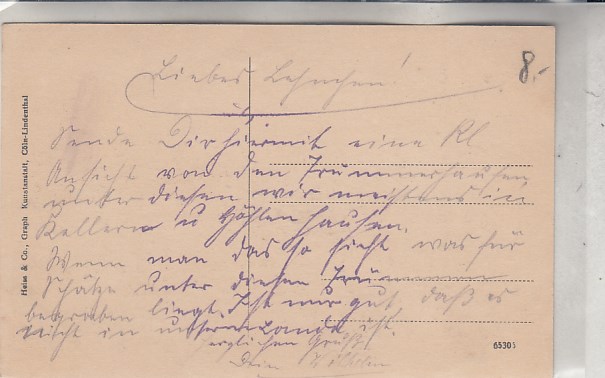 8.-
Liebes Lehnchen!
Sende Dir hiermit eine Kl
Ansicht von den Trümmerhaufen
unter diesen wir meistens in
Kellern u Höhlen hausen.
Wenn man das so sieht was für
Schätze unter diesen
begraben liegt. Ist nur gut daß es
nicht in unserm Lande ist.
Herzlichen Gruß
Dein Wilhelm
Heiss & Co., Graph Kunstanstalt, Cöln-Lindenthal
65305